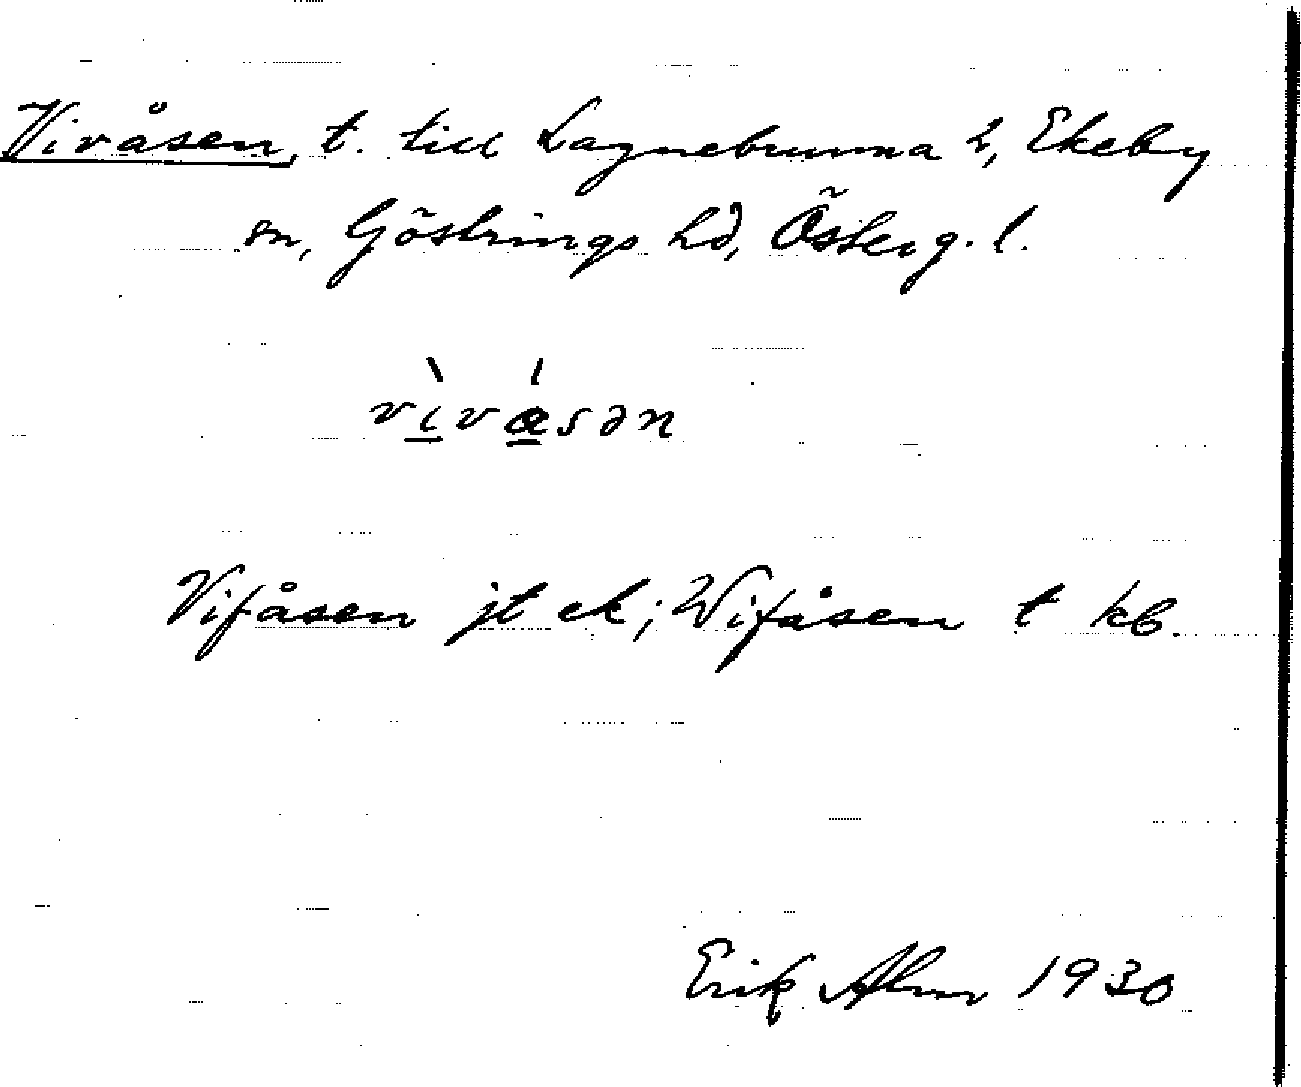 Vivåsen, t. till Lagnebrunna h, Ekeby
sn, Göstrings hd, Österg. l.
vìvǻsən
Vifåsen jt ek; Wifåsen t kb.
Erik Alm 1930